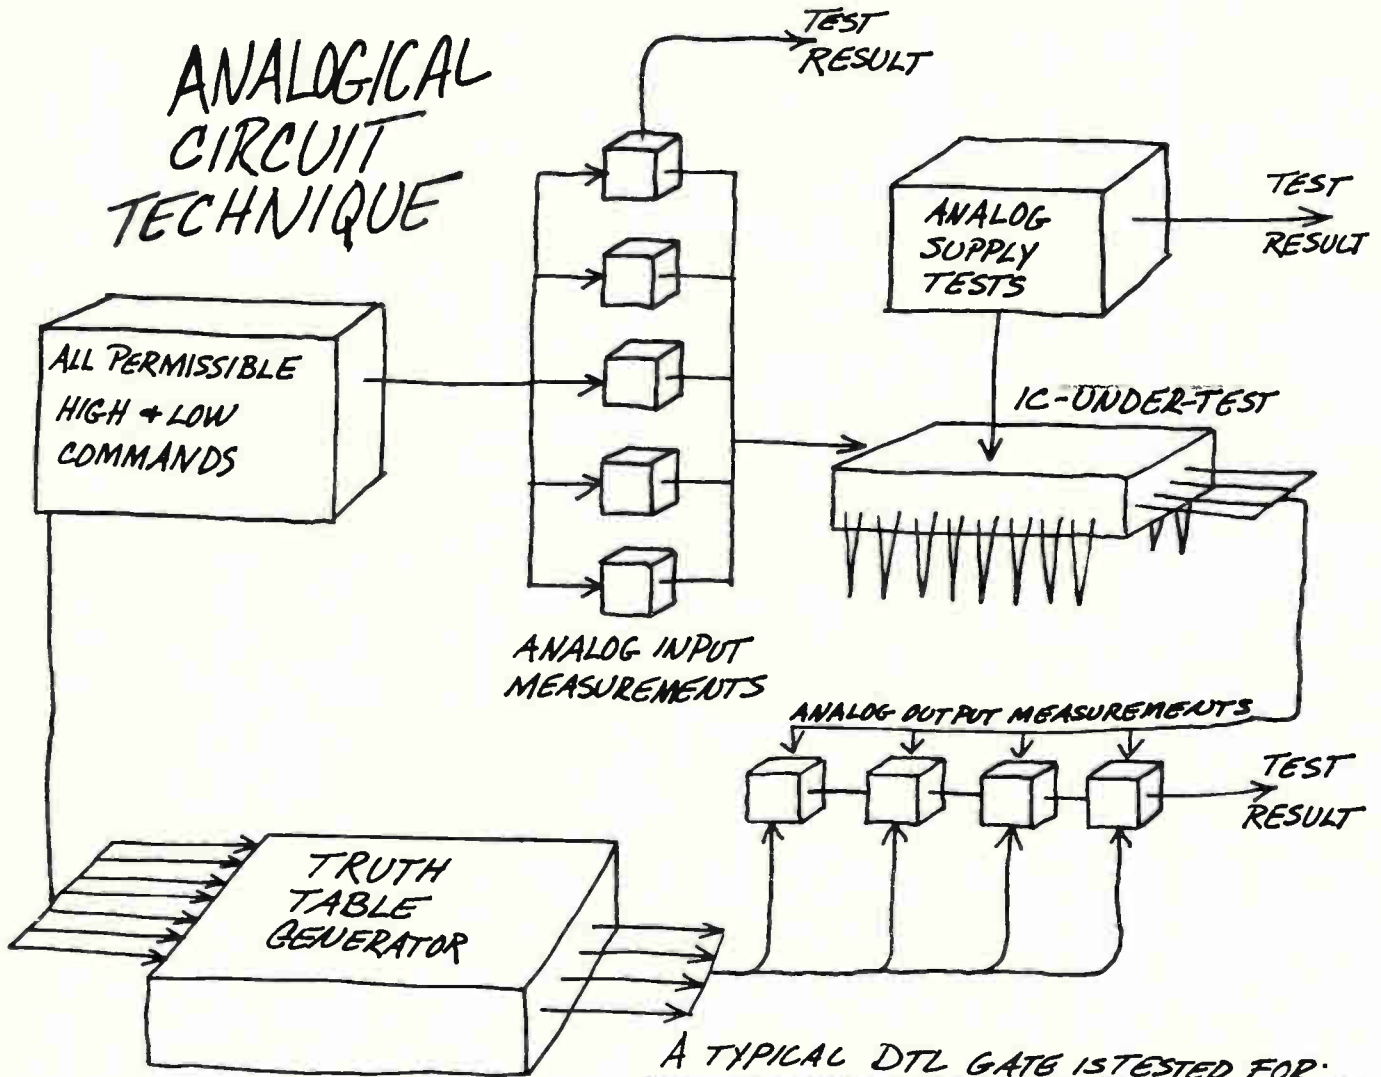 ANALOGICAL
CIRCUIT
TECHNIQUE
TEST
RESULT
ANALOG
SUPPLY
TESTS
TEST
RESULT
ALL PERMISSIBLE
HIGH & LOW
COMMANDS
IC-UNDER-TEST
ANALOG INPUT
MEASUREMENTS
ANALOG OUTPUT MEASUREMENTS
TEST
RESULT
TRUTH
TABLE
GENERATOR
A TYPICAL DTL GATE IS TESTED FOR: